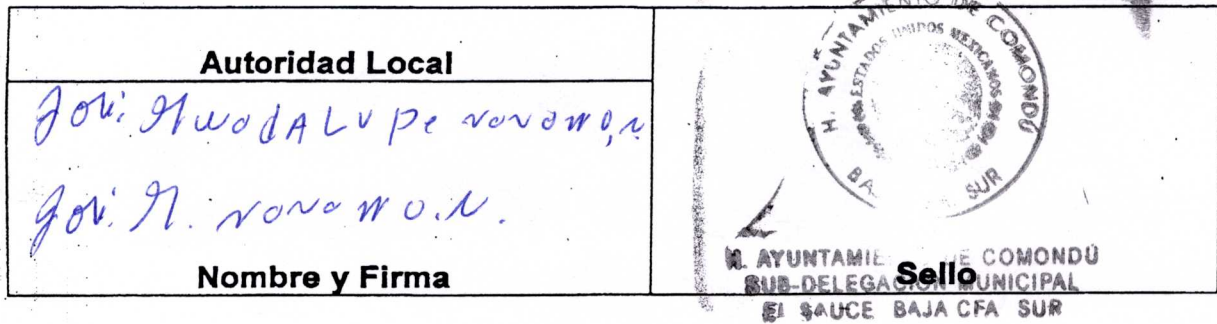 Autoridad Local
José Guadalupe
José G.
Nombre y Firma
H. AYUNTAMIENTO DE COMONDÚ
ESTADOS UNIDOS MEXICANOS
BA SUR
H. AYUNTAMIE DE COMONDÚ
SUB-DELEGACION MUNICIPAL
El SAUCE BAJA CFA SUR
Sello